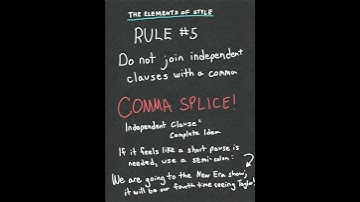 THE ELEMENTS OF STYLE
RULE #5
Do not join independent
clauses with a comma
COMMA SPLICE!
Independent Clause =
Complete Idea
If it feels like a short pause is
needed, use a semi-colon:
We are going to the New Era show;
it will be our fourth time seeing Taylor!